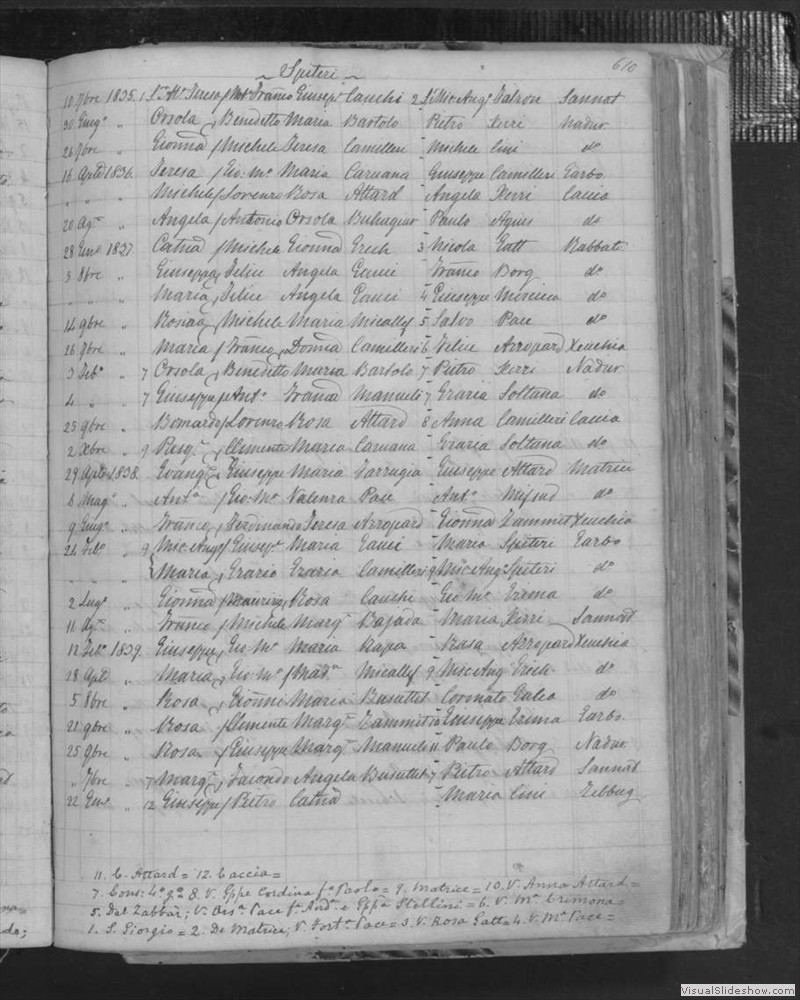 610
~ Spiteri ~
10 7bre 1835. 1 Sr. Ma. Teresa / Not Franco Giusepa Cauchi 2 Sr Mic Anga Falzon Sannat
30 Giugo " Orsola / Benedetto Maria Bartolo - Pietro Xerri Nadur
26 7bre " Gionna / Michele Teresa Camilleri - Michele Cini do
16 Aple 1836. Teresa / Gio: Ma Maria Caruana - Giuseppe Camilleri Garbo
" " " Michele / Lorenzo Rosa Attard - Angela Xerri Caccia
20 Ago " Angela / Antonio Orsola Buhagiar - Paulo Agius do
28 Geno 1837. Catna / Michele Gionna Grech 3 Nicola Gatt Rabbato
3 8bre " Giuseppa / Felice Angela Gauci - Franco Borg do
" " " Maria / Felice Angela Gauci 4 Giuseppe do
14 9bre " Rosina / Michele Maria Micallef 5 Salvo Pace do
26 9bre " Maria / Franco Donna Camilleri 6 Felice Azzopardi Xeuchia
3 Febo " 7 Orsola / Benedetto Maria Bartolo 7 Pietro Xerri Nadur
4 " " 7 Giuseppe / Anto Franca Manueli 7 Grazia Soltana do
25 9bre " Bernardo / Lorenzo Rosa Attard 8 Anna Camilleri Caccia
2 Xbre " 9 / Clemente Maria Caruana - Grazia Soltana do
29 Aple 1838. Evanga / Giuseppe Maria Farrugia - Giuseppe Attard Matrice
6 Mago " Anta / Gio: Ma Valenza Pace - Anto Mifsud do
9 Giugo " Franco / Ferdinando Teresa Azzopard - Gionna Zammit Xeuchia
24 Febo " 9 Mic: Angl / Giusepe Maria Gauci - Maria Spiteri Garbo
" " " { Maria / Grazio Grazia Camilleri 9 Mic: Ango Spiteri do
2 Lugo " Gionna / Maurizio Rosa Cauchi - Gio Ma do
11 Ago " Franco / Michele Marga Bajada - Maria Xerri Sannat
12 Febo 1839. Giuseppe / Gio: Ma Maria Rapa - Rosa Azzopard Xeuchia
18 Aple " Maria / Gio: Ma / Mada Micallef 9 Mic Ang Grech do
5 8bre " Rosa / Gionni Maria Busuttil - Coronato Galea do
21 9bre " Rosa / Clemente Marga Zammit 10 Giuseppe Garbo
25 9bre " Rosa / Giuseppe Marga Manueli 11 Paulo Borg Nadur
" 7bre " 7 Marga / Facondo Angela Busuttil 7 Pietro Attard Sannat
22 Geno " 12 Giuseppe / Pietro Catna - Maria Cini Zebbug
11. C. Attard = 12. Caccia =
7. Cons: 4o go 8. V. Gppe Cordina fa Paolo = 9. Matrice = 10. V. Anna Attard =
5. Dal Zabbar; V. Orsa Pace fa Anda e Gppa Stellini = 6. V. Ma Cremona =
1. S. Giorgio = 2. De Matrice; V. Forta Pace = 3. V. Rosa Gatt = 4. V. Ma Pace =
VisualSlideshow.com